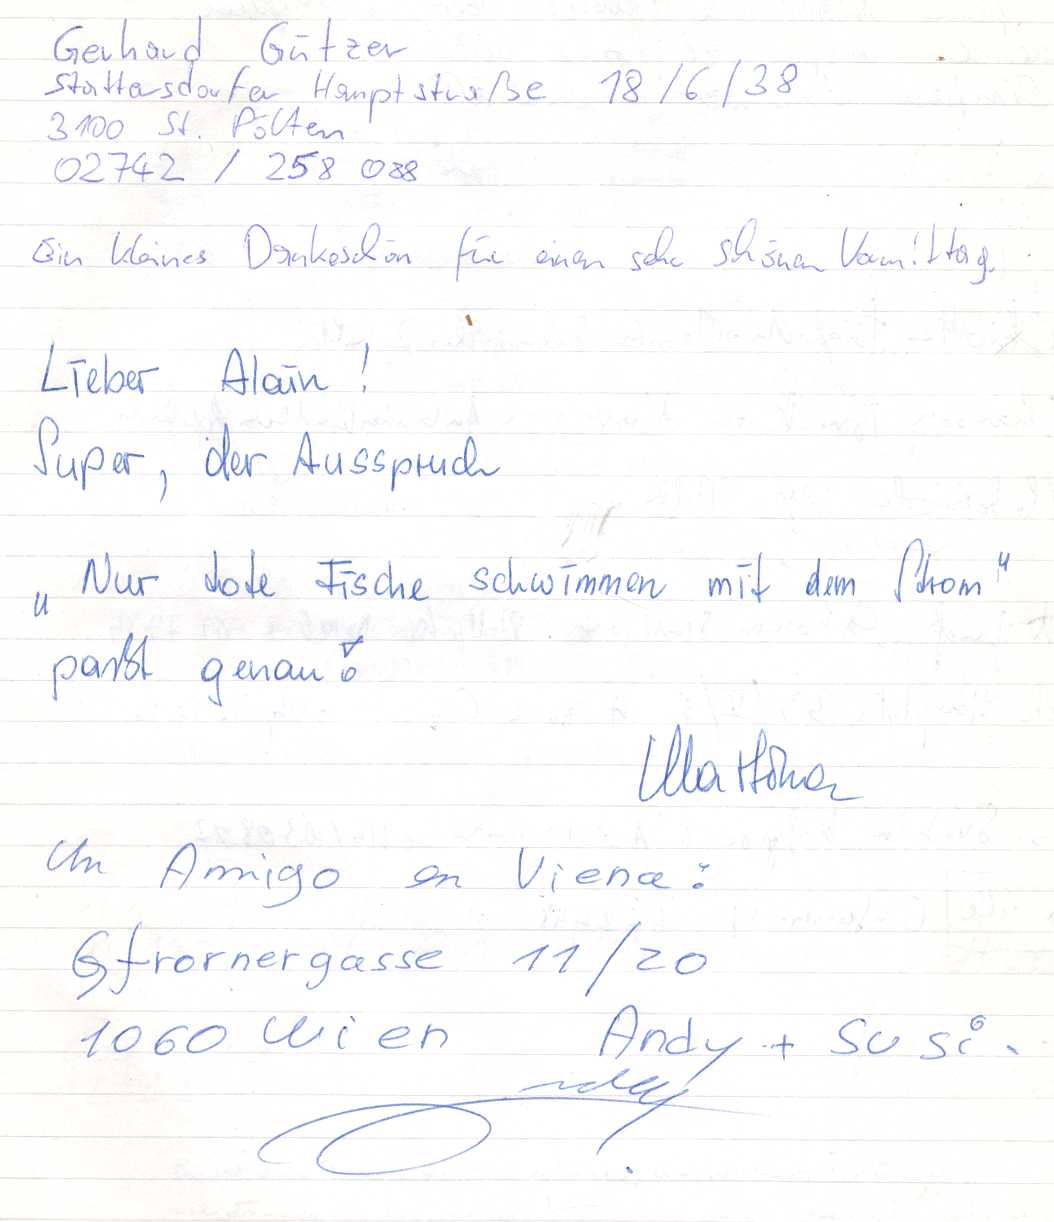 Gerhard Gützer
Stattersdorfer Hauptstraße 18/6/38
3100 St. Pölten
02742 / 258 038
Ein kleines Dankeschön für einen sehr schönen Vormittag.
Lieber Alain!
Super, der Ausspruch
„Nur tote Fische schwimmen mit dem Strom“
paßt genau!
Un Amigo en Viena:
Gfrornergasse 11/20
1060 Wien Andy + Susi.